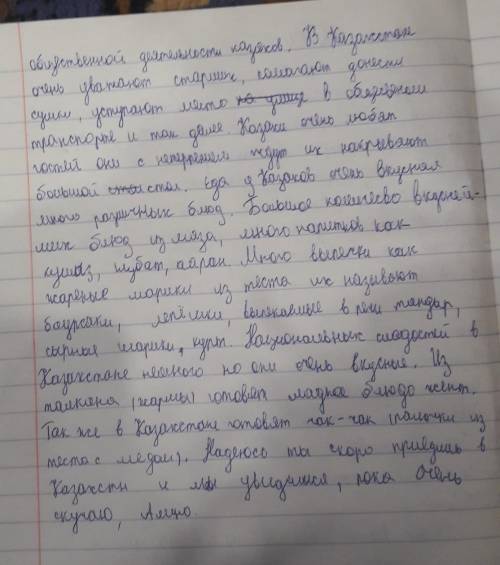 общественной деятельности казахов. В Казахстане
очень уважают старших, помогают донести
сумки, уступают место в общественном
транспорте и так далее. Казахи очень любят
гостей они с нетерпением ждут их накрывают
большой стол. Еда у Казахов очень вкусная
много различных блюд. Большое количево вкусней-
ших блюд из мяса, много напитков как
кумыз, шубат, айран. Много выпечки как
жареные шарики из теста их называют
баурсаки, лепёшки, выпекаемые в печи тандыр,
сырные шарики, курт. Национальных сладостей в
Казахстане немного но они очень вкусные. Из
талкана (жармы) готовят сладкое блюдо жент.
Так же в Казахстане готовят чак-чак (палочки из
теста с медом). Надеюсь ты скоро приедишь в
Казахстн и мы увидимся, пока очень
скучаю,